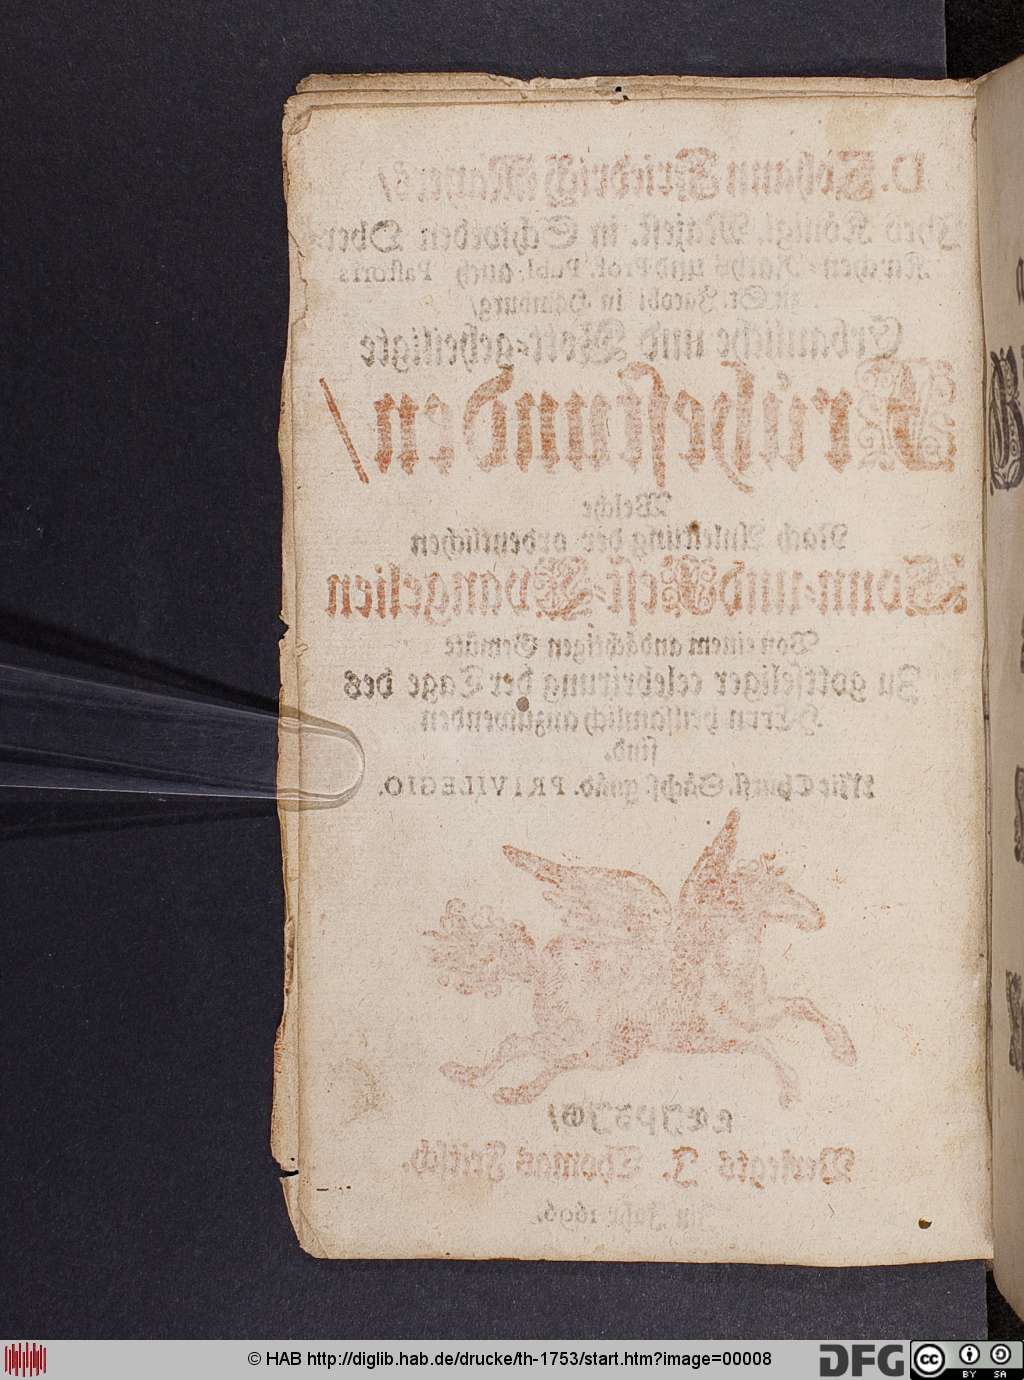 D. Johann Friedrich Mayers/
Ihro Königl. Majest. in Schweden Ober-
Kirchen-Raths und Prof. Publ. auch Pastoris
zu St. Jacobi in Hamburg/
Erbauliche und Gott-geheiligte
Fruhestunden/
Welche
Nach Anleitung der ordentlichen
Sonn- und Fest-Evangelien
Von einem andächtigen Gemüte
Zu gottseliger celebrirung der Tage des
HErrn heilsamlich anzuwenden
sind.
Mit Churfl. Sächs. gnäd. PRIVILEGIO.
LEIPZIG/
Verlegts J. Thomas Fritsch.
Im Jahr 1696.
© HAB http://diglib.hab.de/drucke/th-1753/start.htm?image=00008
DFG
cc
BY SA